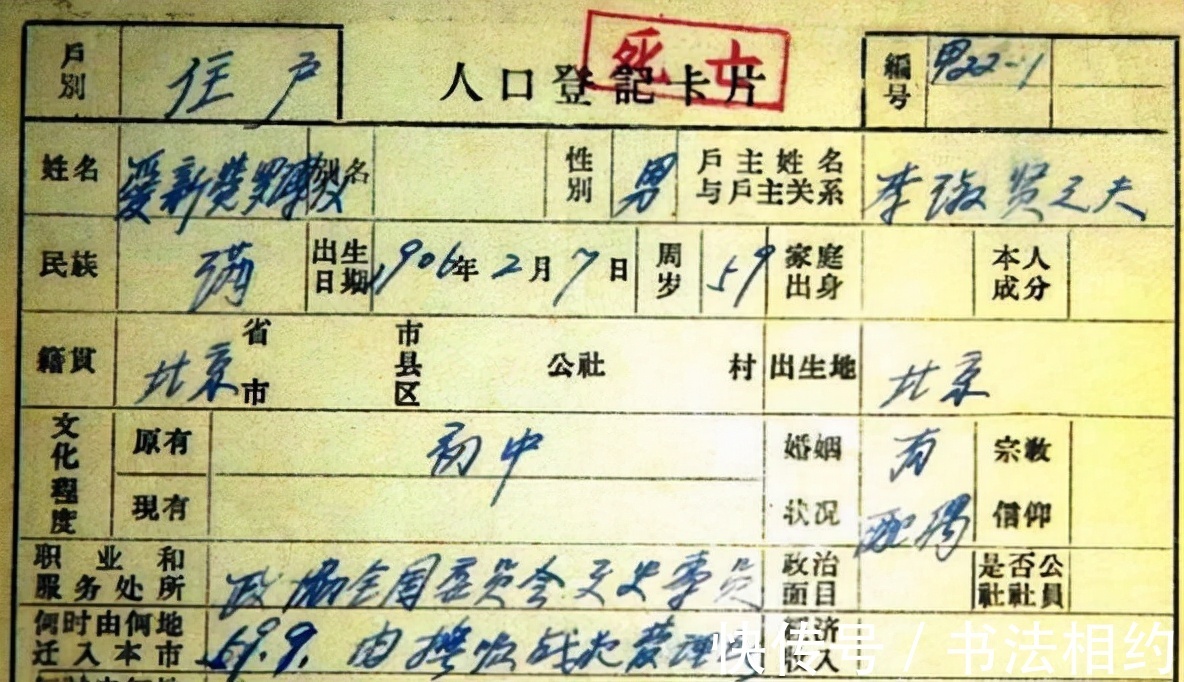 死亡
户别 住户 人口登記卡片 編号 男22-1
姓名 爱新觉罗溥仪 别名 性别 男 戶主姓名与戶主关系 李淑贤之夫
民族 满 出生日期 1906年2月7日 周岁 59 家庭出身 本人成分
籍贯 北京 省市 市县区 公社 村 出生地 北京
文化程度 原有 初中 婚姻状况 有配偶 宗教信仰
現有
职业和服务处所 政协全国委员会文史专员 政治面目 是否公社社員
何时由何地迁入本市 59.9. 由抚顺战犯管理 经济收入
快传号 / 书法相约